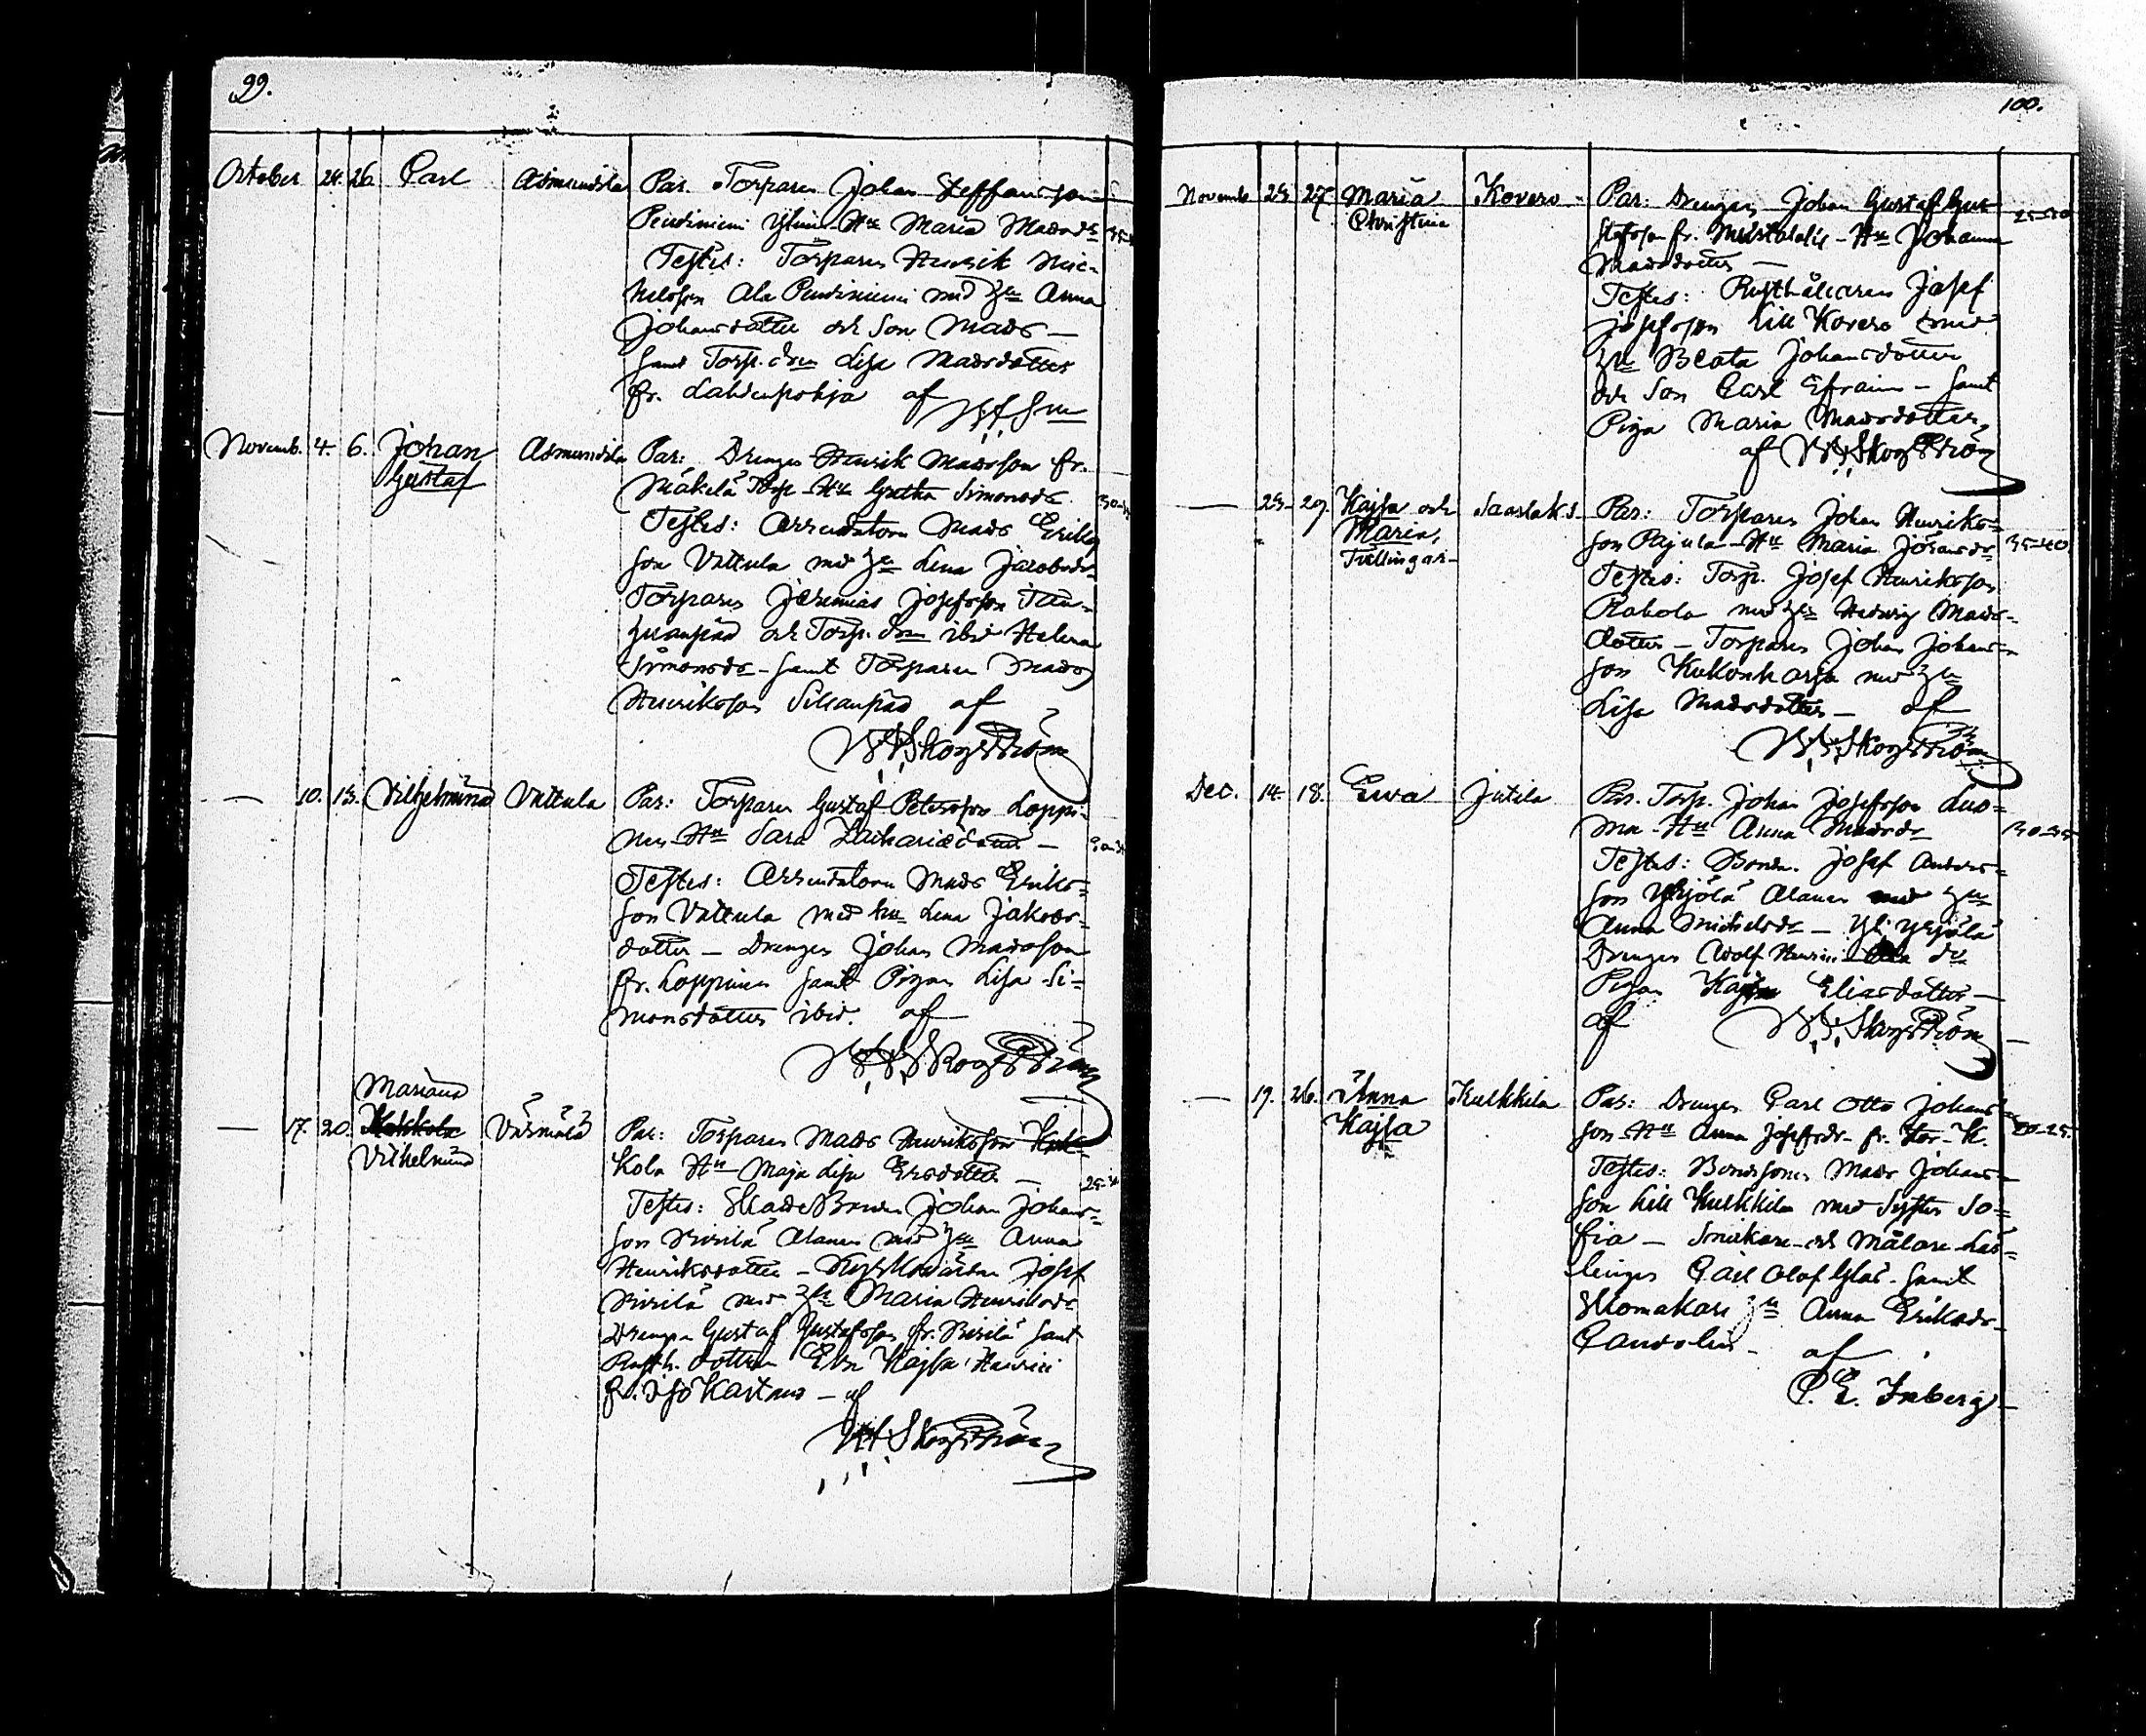 99.
October 24. 26. Carl Asmundila Par. Torparen Johan Steffansson
Pendiniemi Ylinen Hu Maria Madsdr 35-
Testes: Torparen Henrik Mic-
helsson Ala Pendiniemi med hu Anna
Johansdotter och Son Mads —
samt Torp. drn Lisa Madsdotter
fr. Lahdenpohja af
Novemb. 4. 6. Johan Asmundila Par: Drengen Henrik Madsson fr.
Gustaf Mäkelä Torp - Hu Gretha Simonsdr. 30-35
Testes: Arrendatorn Mads Eriks
son Vattula med hu Lena Jacobsdr
Torparen Jeremias Josefsson
och Torp. drn ibid Helena
Simonsdr - samt Torparen Mads
Henriksson af
W. Skogström
— 10. 13. Vilhelmina Vattula Par: Torparen Gustaf Petersson Loppi-
nen - Hu Sara Zachariædotter — 30-35
Testes: Arrendatorn Mads Eriks=
son Vattula med hu Lena Jakobs-
dotter — Drengen Johan Madsson
fr. Loppinen samt Pigan Lisa Si=
monsdotter ibid. af
W. Skogström
Mariana
— 17. 20. Par: Torparen Mads Henriksson Kak-
Vilhelmina kola Hu Maja Lisa Ersdotter — 25-30
Testes: Bonden Johan Johans=
son Alanen med hu Anna
Henriksdotter — Josef
med hu Maria Henriksdr
Drengen Gustaf Gustafsson fr. samt
Rusth. dottren Eva Kajsa Henrici
fr. — af
W. Skogström
100.
Novemb. 25 27. Maria Kovero - Par: Drengen Johan Gustaf Gus 25-30
Christina stafsson fr. - Hu Johanna
Madsdotter —
Testes: Rusthållaren Josef
Josefsson Lill Kovero med
hu Beata Johansdotter
och Son Carl Efraim — samt
Piga Maria Madsdotter,
af W. Skogström
— 25- 29. Kajsa och Saarlaks - Par: Torparen Johan Henriks=
Maria, son Pajula - Hu Maria Johansdr 35-40
Tvillingar - Testes: Torp. Josef Henriksson
Rahola med hu Hedvig Mads-
dotter — Torparen Johan Johans-
son Kukonharja med hu
Lisa Madsdotter — af
W. Skogström
Dec. 14. 18. Ewa Jutila Par. Torp. Johan Josefsson Luo=
ma - Hu Anna Madsdr 30-35
Testes: Bonden Josef Anders=
son Yrjölä Alanen med hu
Anna Michelsdr — Yli Yrjölä
Drengen Adolf Henrici do
Pigan Kajsa Eliasdotter —
af W. Skogström —
— 19. 26. Anna Kulkkila Par: Drengen Carl Otto Johans=
Kajsa son - Hu Anna Josefsdr - fr. Stor-K. 20-25.
Testes: Bondsonen Mads Johans-
son Lill Kulkkila med Syster So=
fia — Snickare- och Målare-Lär=
lingen Carl Olof Glas - samt
Skomakare hu Anna Eriksdr
Candolin - af
C. E. Inberg —